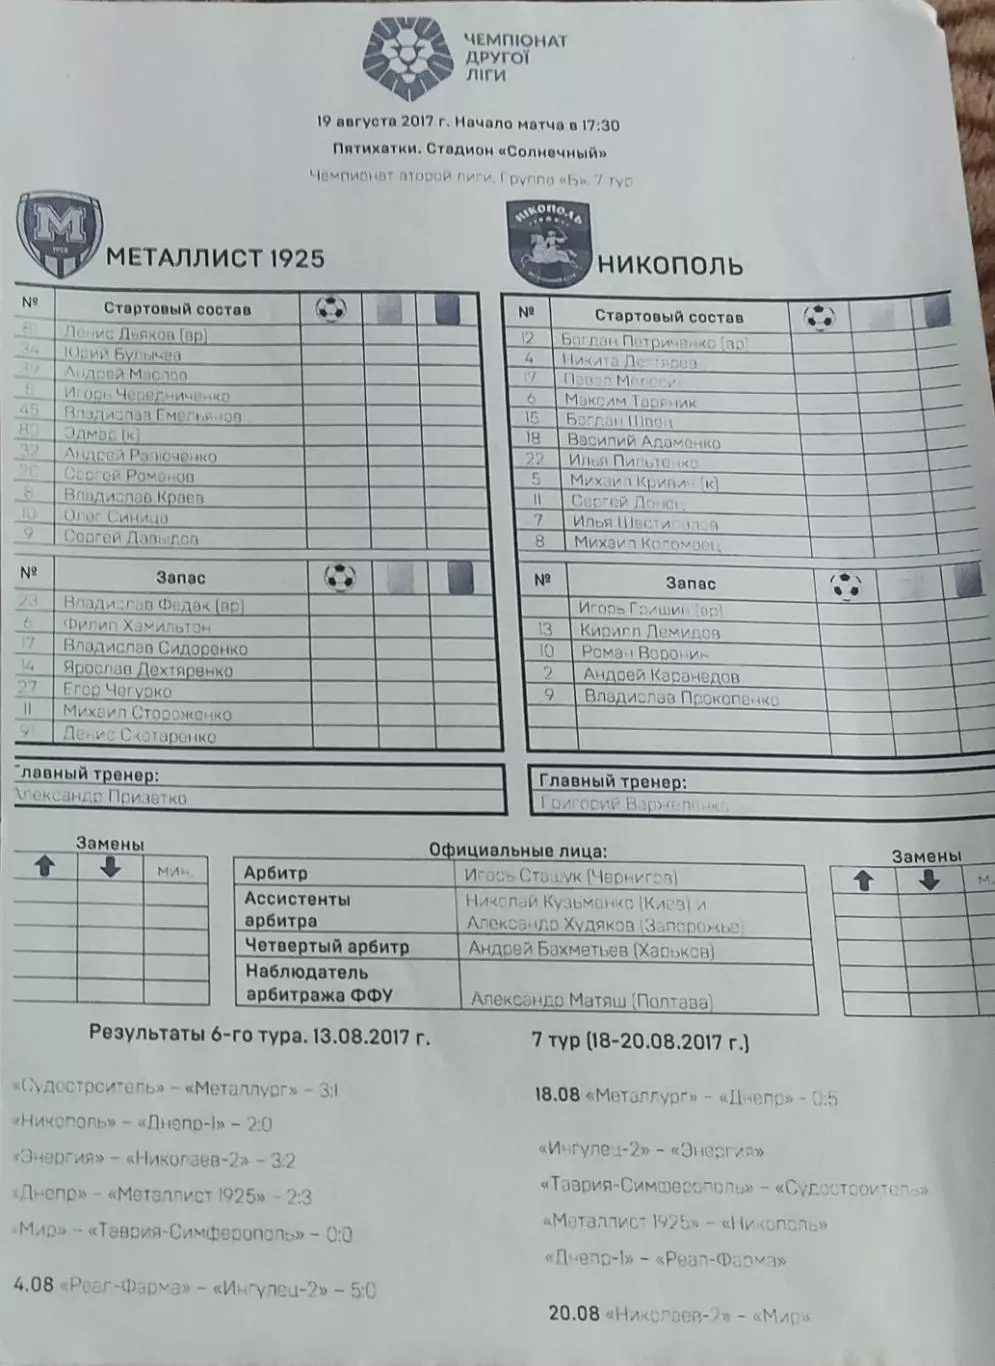 ЧЕМПІОНАТ
ДРУГОЇ
ЛІГИ
19 августа 2017 г. Начало матча в 17:30
Пятихатки. Стадион «Солнечный»
Чемпионат второй лиги. Группа «Б». 7 тур
МЕТАЛЛИСТ 1925
№ Стартовый состав
Денис Дьяков (вр)
34 Юрий Булычев
39 Андрей Маслов
Игорь Чередниченко
45 Владислав Емельянов
Эдмар (к)
32 Андрей Ралюченко
20 Сергей Романов
8 Владислав Краев
10 Олег Синица
9 Сергей Давыдов
№ Запас
23 Владислав Федак (вр)
6 Филип Хамильтон
17 Владислав Сидоренко
14 Ярослав Дехтяренко
27 Егор Чегурко
11 Михаил Стороженко
91 Денис Скотаренко
Главный тренер:
Александр Призетко
НІКОПОЛЬ
НИКОПОЛЬ
№ Стартовый состав
12 Богдан Петриченко (вр)
4 Никита Дегтярев
17 Павел
6 Максим Таряник
15 Богдан Швец
18 Василий Адаменко
22 Илья Пильтенко
5 Михаил Кривич (к)
11 Сергей Донец
7 Илья Шестипалов
8 Михаил Коломоец
№ Запас
Игорь Гришин (вр)
13 Кирилл Демидов
10 Роман Воронин
2 Андрей Каранедов
9 Владислав Прокопенко
Главный тренер:
Григорий Варжеленко
Замены
мин.
Официальные лица:
Арбитр Игорь Сташук (Чернигов)
Ассистенты арбитра Николай Кузьменко (Киев) и
Александр Худяков (Запорожье)
Четвертый арбитр Андрей Бахметьев (Харьков)
Наблюдатель
арбитража ФФУ Александр Матяш (Полтава)
Замены
Результаты 6-го тура. 13.08.2017 г.
«Судостроитель» – «Металлург» – 3:1
«Никополь» – «Днепр-1» – 2:0
«Энергия» – «Николаев-2» – 3:2
«Днепр» – «Металлист 1925» – 2:3
«Мир» – «Таврия-Симферополь» – 0:0
4.08 «Реал-Фарма» – «Ингулец-2» – 5:0
7 тур (18-20.08.2017 г.)
18.08 «Металлург» – «Днепр» - 0:5
«Ингулец-2» – «Энергия»
«Таврия-Симферополь» – «Судостроитель»
«Металлист 1925» – «Никополь»
«Днепр-1» – «Реал-Фарма»
20.08 «Николаев-2» – «Мир»